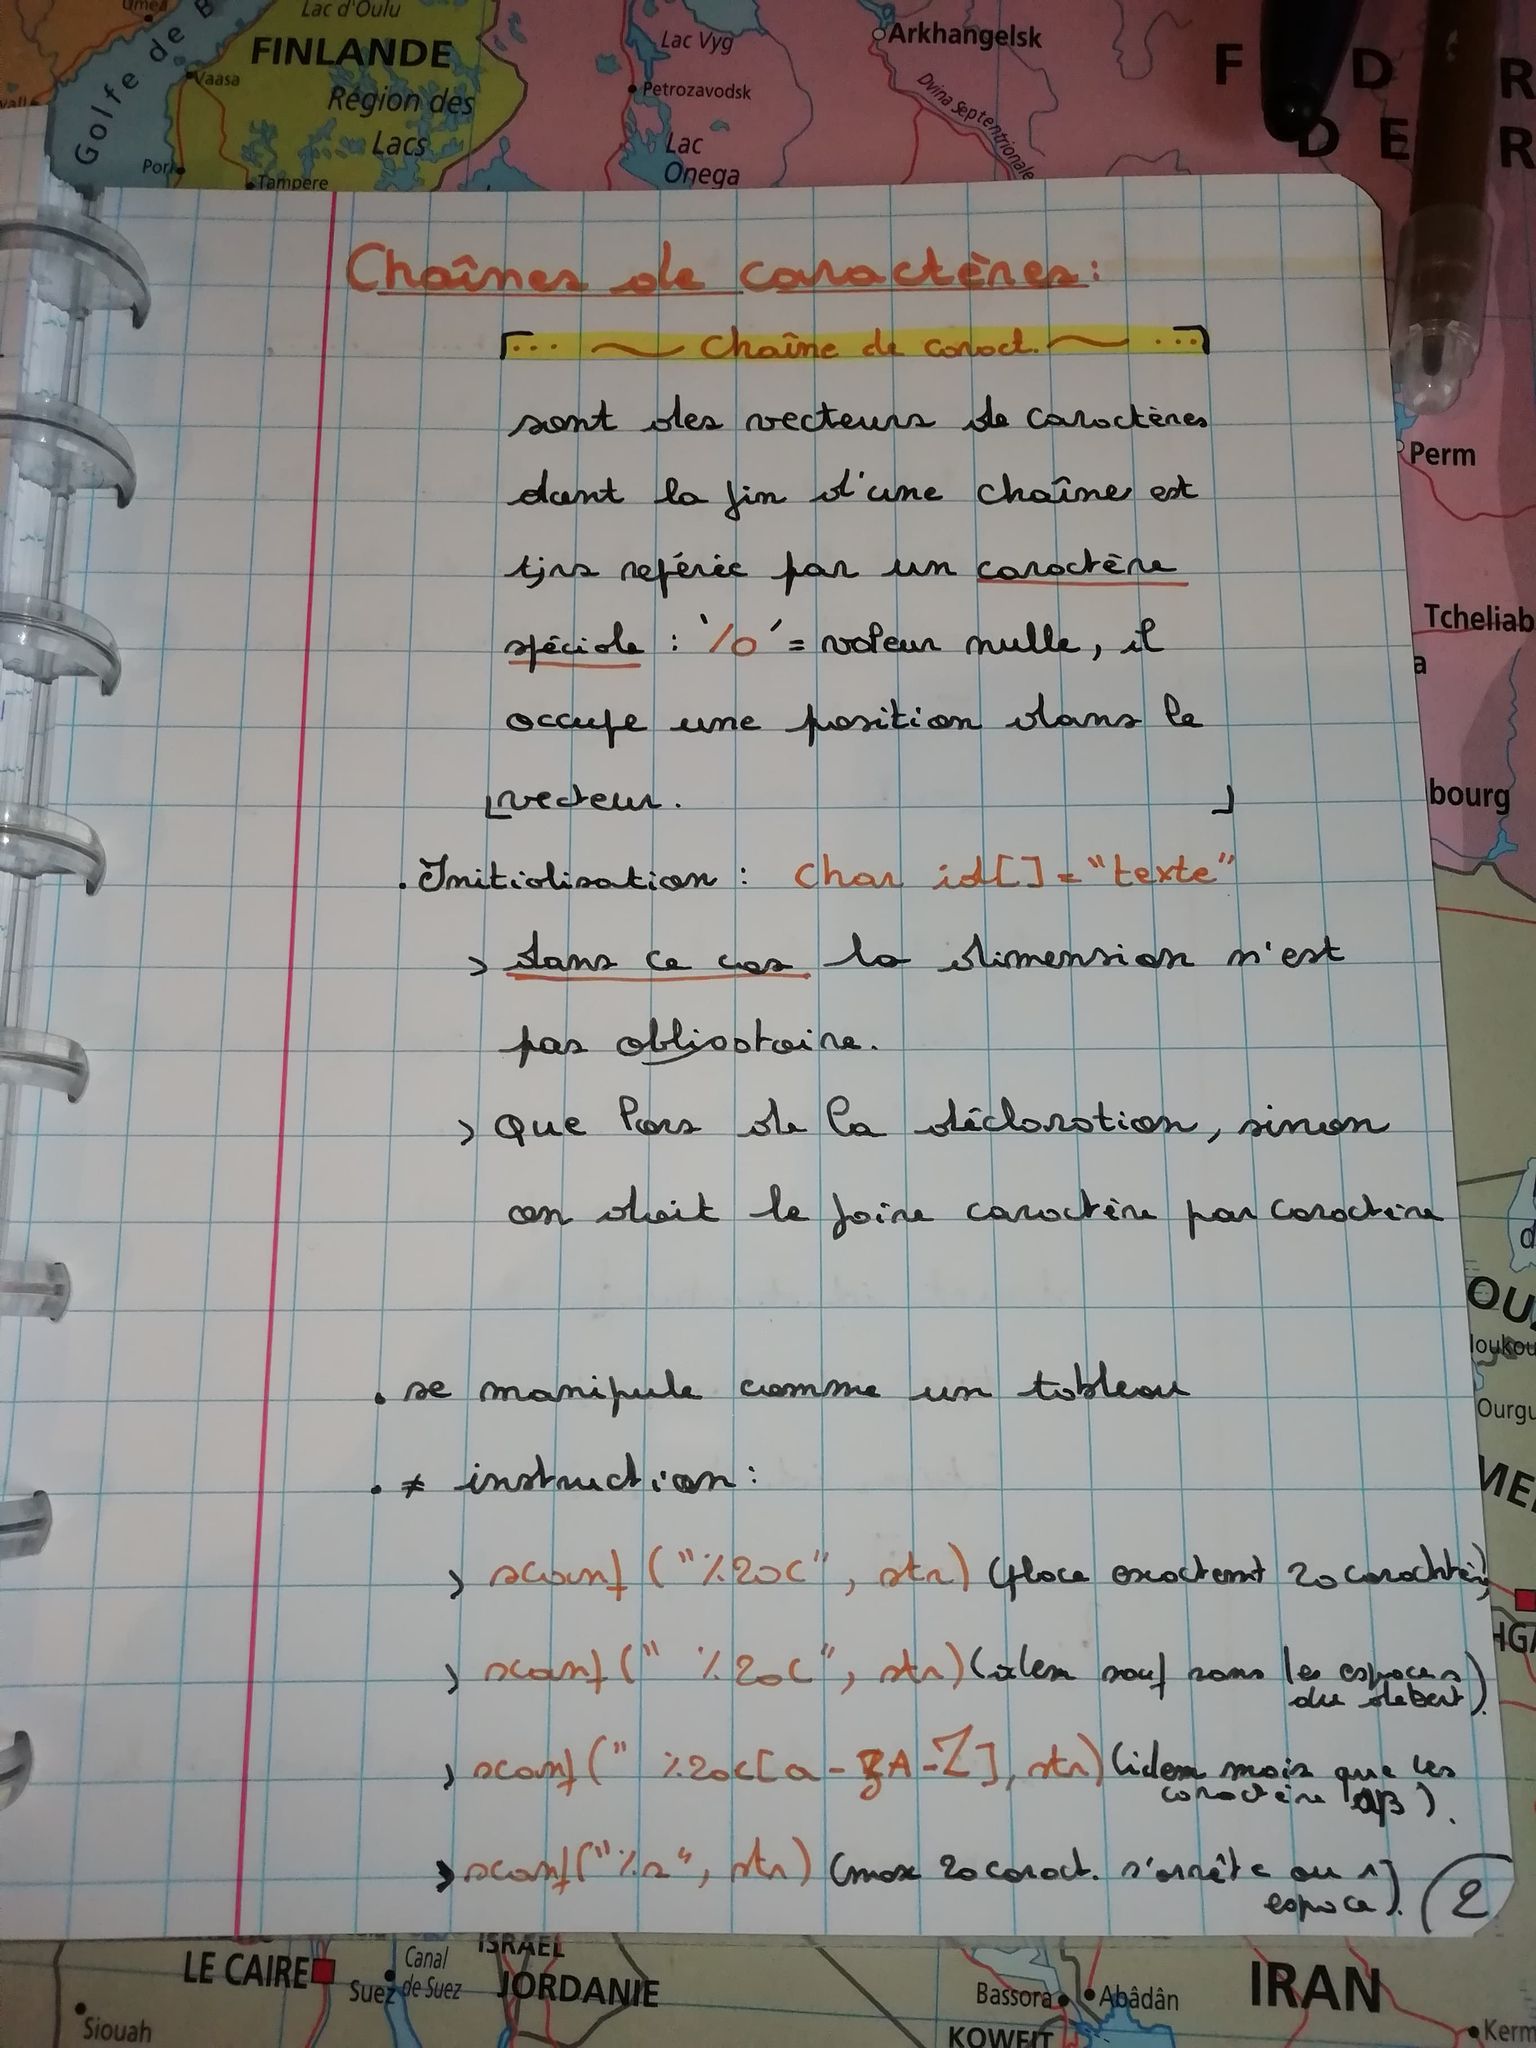 Umeå
Lac d'Oulu
Golfe de B
FINLANDE
Vaasa
Région des
Lacs
Pori
Tampere
Lac Vyg
Petrozavodsk
Lac
Onega
Arkhangelsk
Dvina Septentrionale
F D R
D E R
Chaînes de caractères :
... ~ Chaîne de caract. ~ ...
sont des vecteurs de caractères
dont la fin d'une chaîne est
tjrs referée par un caractère
spéciale : '/0' = valeur nulle, il
occupe une position dans le
vecteur.
. Initialisation : char id[] = "texte"
> dans ce cas la dimension n'est
pas obligatoire.
> Que lors de la déclaration, sinon
on doit le faire caractère par caractère
. se manipule comme un tableau
. ≠ instruction :
> scanf ("%20c", str) (place exactemt 20 caractèr)
> scanf (" %20c", str) (idem sauf sans les espaces
du debut).
> scanf (" %20c[a-zA-Z], str) (idem mais que les
caractère αβ).
> scanf ("%s", str) (max 20 caract. s'arrête au 1
espace).
2
Perm
Tcheliab
a
bourg
OU
loukou
Ourgu
ME
HGA
LE CAIRE
Suez
Canal
de Suez
ISRAËL
JORDANIE
Siouah
Bassora
Abâdân
KOWEIT
IRAN
Kerm